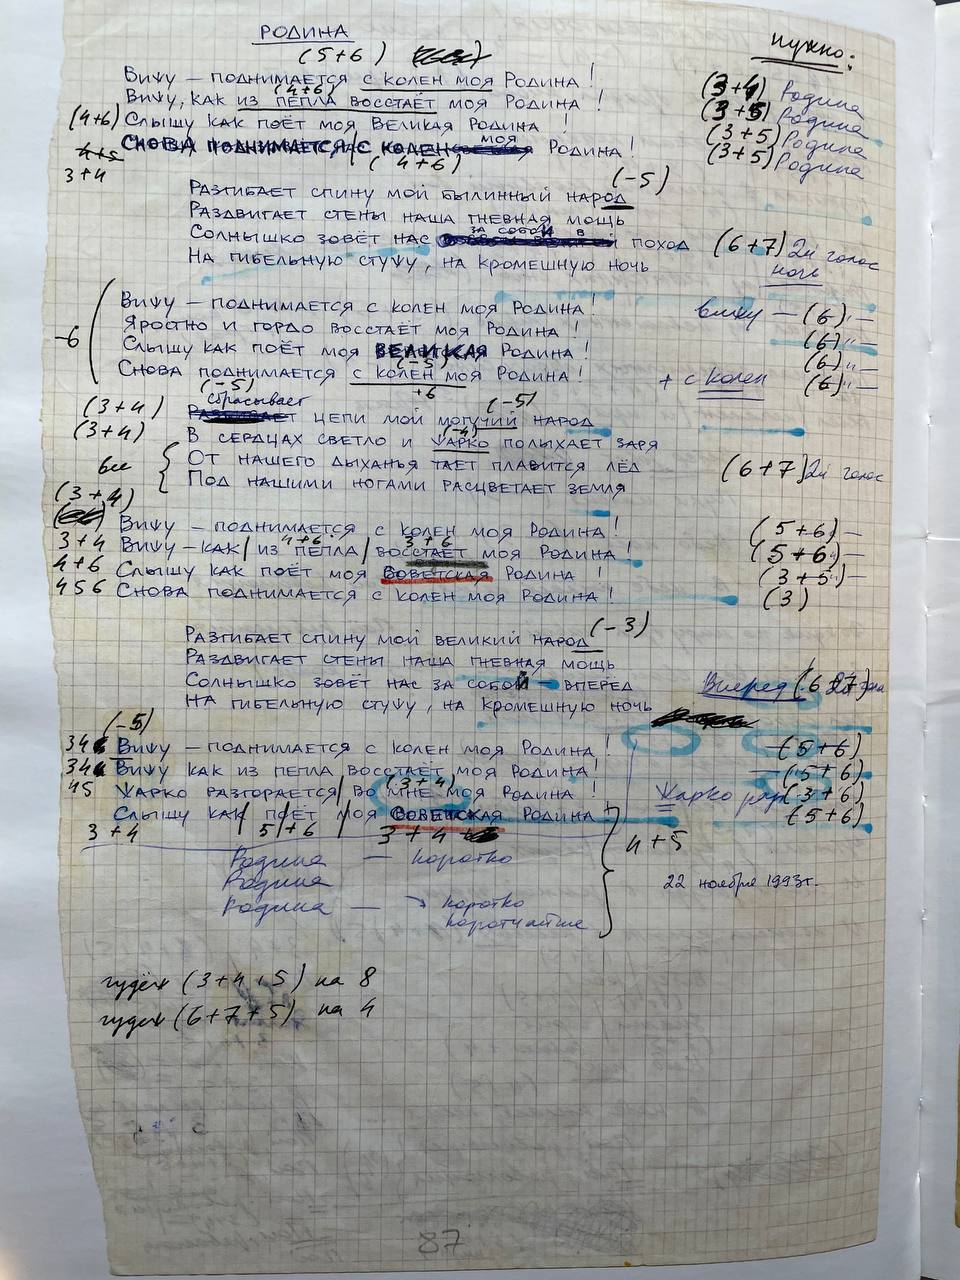 РОДИНА
нужно:
(5+6)
Вижу – поднимается с колен моя Родина!
(3+4) Родина
(4+6)
Вижу, как из пепла восстаёт моя Родина!
(3+5) Родина
(4+6) Слышу как поёт моя великая Родина!
(3+5) Родина
4+5 Снова поднимается с колен моя Родина!
(3+5) Родина
3+4
(4+6)
(-5)
Разгибает спину мой былинный народ
Раздвигает стены наша гневная мощь
за собой в
Солнышко зовёт нас поход (6+7) 2й голос
На гибельную стужу, на кромешную ночь
ночь
Вижу – поднимается с колен моя Родина!
вижу – (6) "–
Яростно и гордо восстаёт моя Родина!
(6) "–
-6
Слышу как поёт моя ВЕЛИКАЯ Родина!
(6) "–
(-5)
Снова поднимается с колен моя Родина!
+ с колен (6) "–
(-5) +6
сбрасывает (-5)
(3+4) цепи мой могучий народ
(-4)
(3+4) В сердцах светло и жарко полыхает заря
От нашего дыханья тает плавится лёд
все
(6+7) 2й голос
Под нашими ногами расцветает земля
(3+4)
Вижу – поднимается с колен моя Родина!
(5+6) –
4+6 3+6
3+4 Вижу – как | из пепла | восстаёт моя Родина!
(5+6) –
4+6 Слышу как поёт моя Советская Родина!
(3+5) –
456 Снова поднимается с колен моя Родина!
(3)
(-3)
Разгибает спину мой великий народ
Раздвигает стены наша гневная мощь
Солнышко зовёт нас за собой – вперед
Вперед
На гибельную стужу, на кромешную ночь
(-5)
34 Вижу – поднимается с колен моя Родина!
–(5+6)
34 Вижу как из пепла восстаёт моя Родина!
–(5+6)
(3+4)
45 Жарко разгорается | во мне моя Родина!
Жарко (3+6)
Слышу как | поёт | моя Советская Родина
(5+6)
3+4 5+6 3+4
4+5
Родина – коротко
Родина
22 ноября 1993г.
Родина – коротко
коротчайше
гудёж (3+4+5) на 8
гудёж (6+7+5) на 4
87